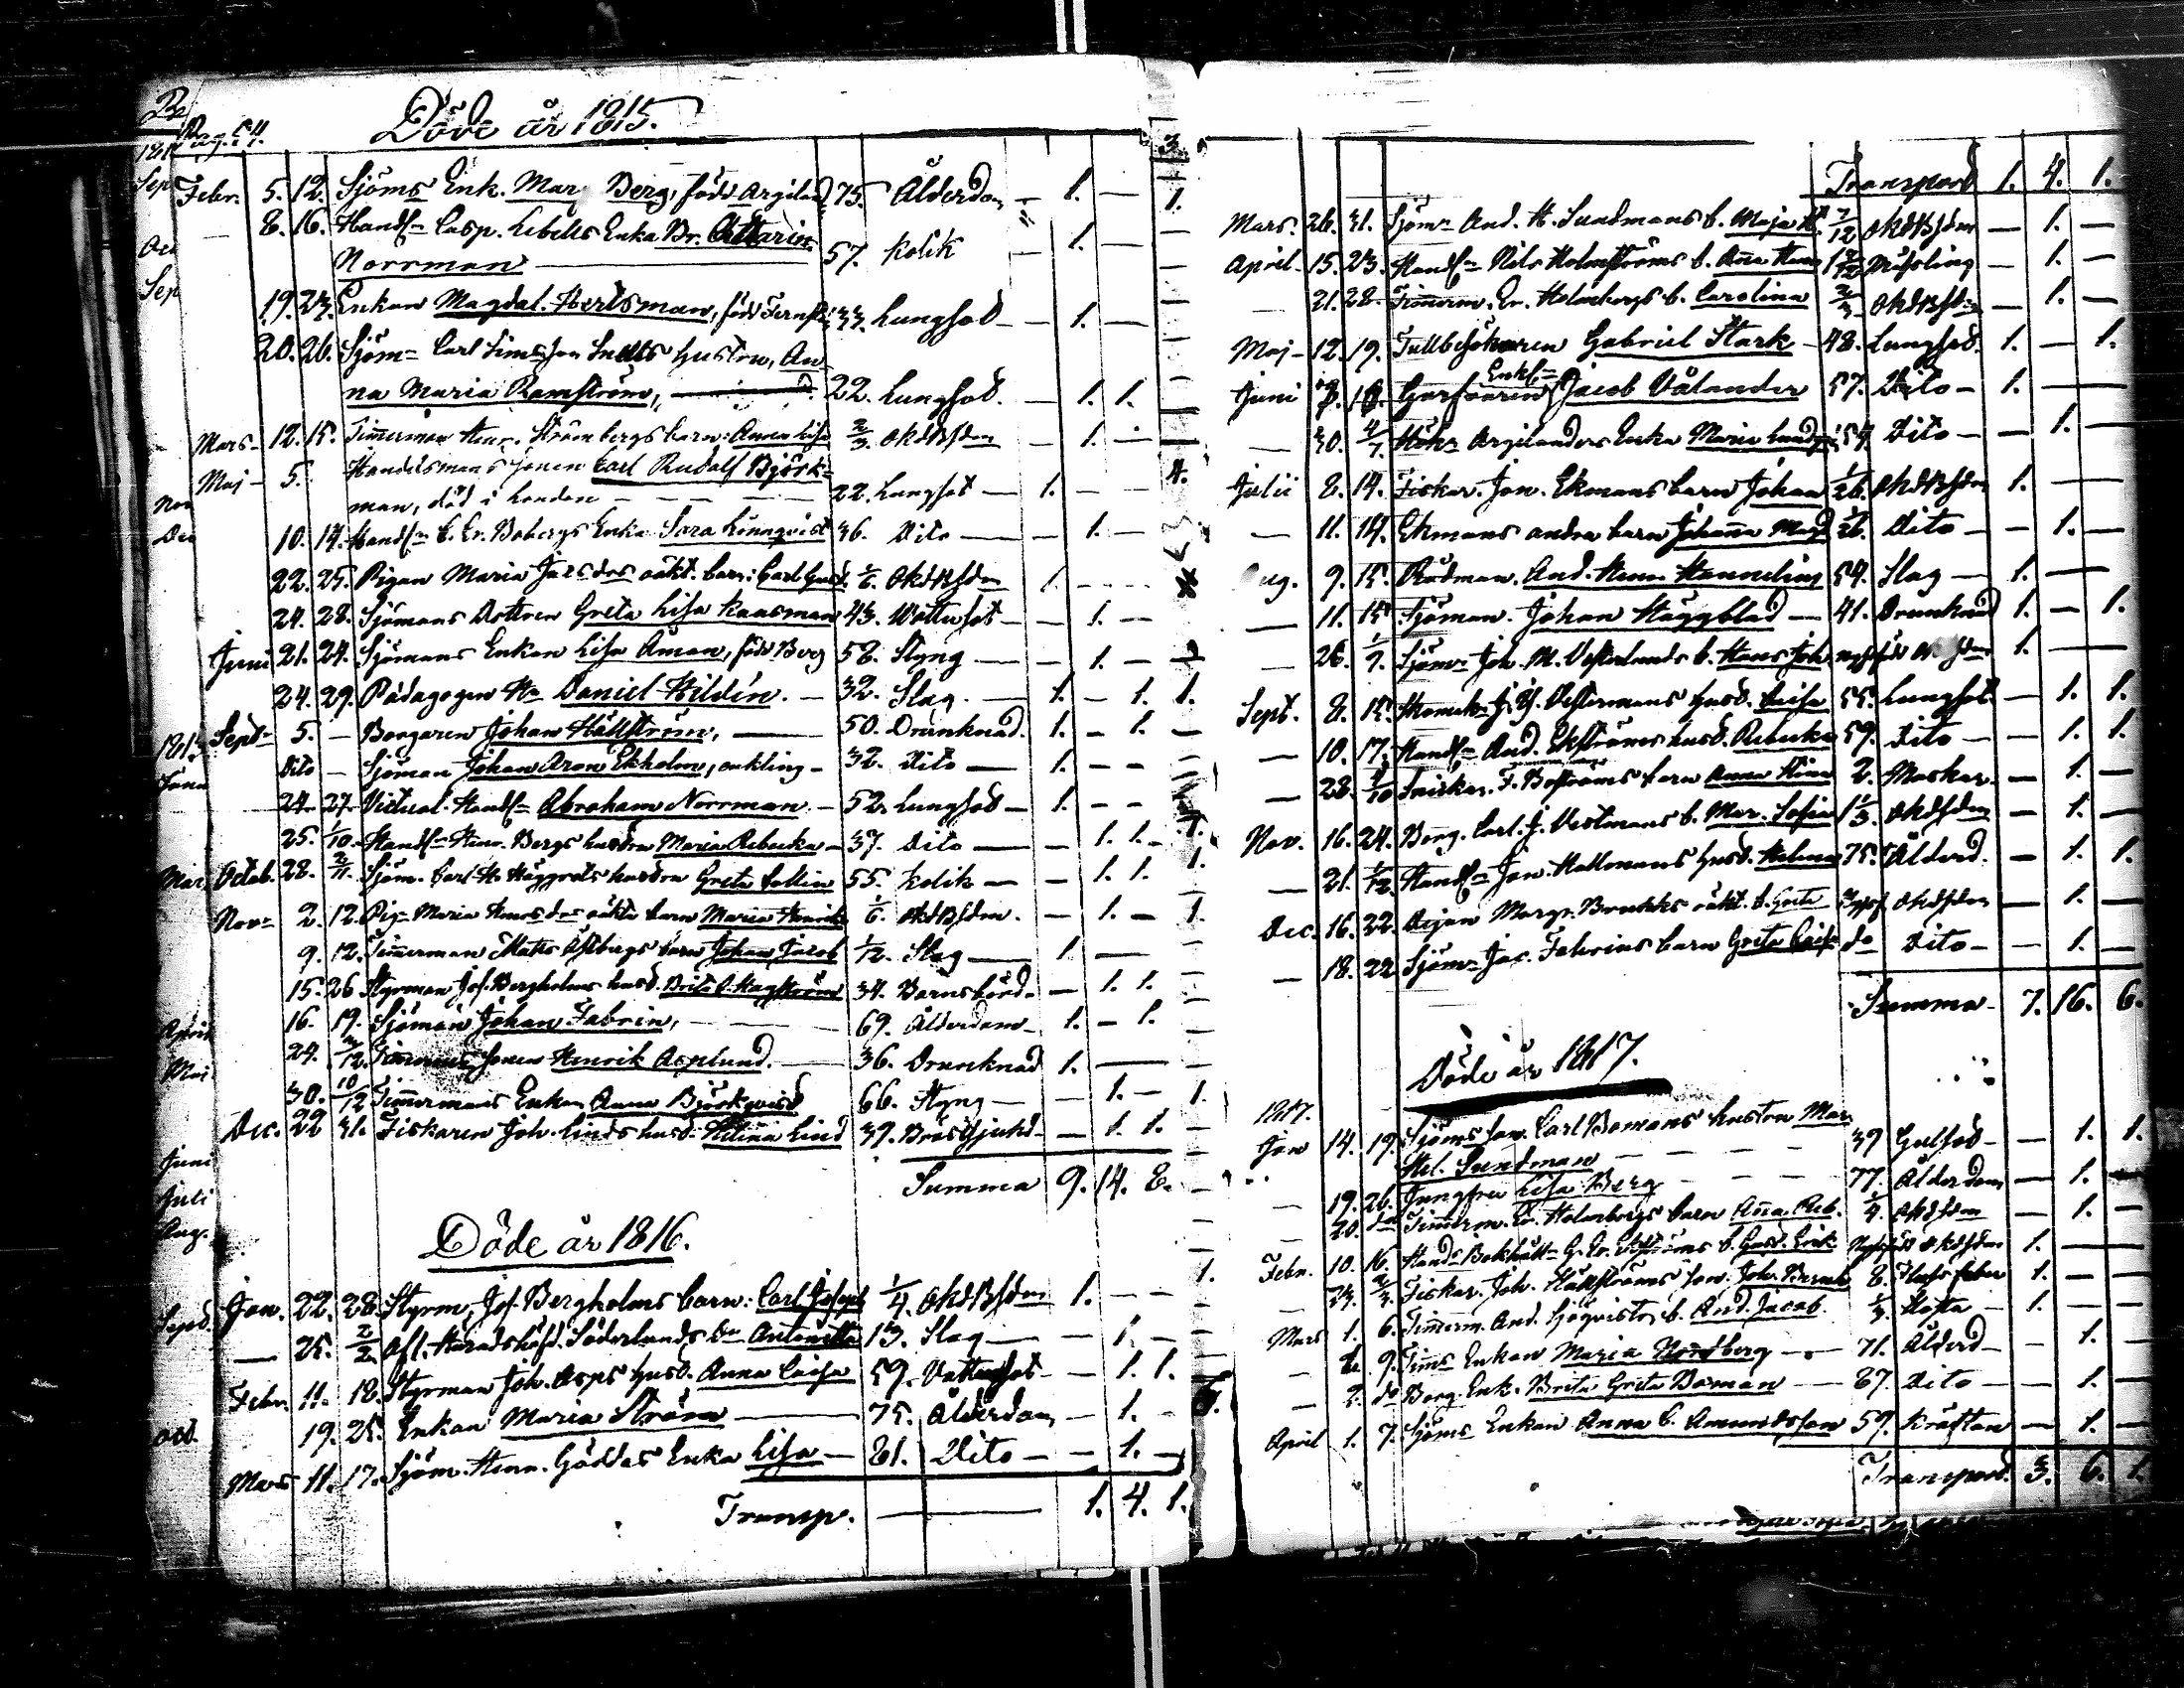 Pag. 54.
Döde år 1815.
Febr. 5. 12. Sjöms Enk. Mar Berg, född Argiland 75. Ålderdom — 1. — 1.
8. 16. Handl:n Casp. Libells Enka Br. Catharin.
Norrman — 57. Kolik — 1. —
19. 23. Enkan Magdal. Hertsman, född 33. Lungsot — 1. —
20. 26. Sjöm:n Carl Simsson Snells Hustru, An-
na Maria Ramström, — 22. Lungsot. — 1. 1.
Mars 12. 15. Timerman Henr. Strömbergs barn: Anna Lisa 2/3. Okd Bsdm — 1. —
Maj 5. Handelsmans Sonen Carl Rudolf Björk-
man, död i London — 22. Lungsot — 1. —
10. 14. Handl:n C. Er. Bobergs Enka Sara Lönnqvist 36. Dito — 1. —
22. 25. Pigan Maria Jacsdrs oäkt. barn: Carl Gust. 1/6. Okd Bsdm 1.
24. 28. Sjömans Dottren Greta Lisa Kaasman 43. Vattusot — 1. —
Juni 21. 24. Sjömans Enkan Lisa Åman, född Berg 58. Styng — 1. —
24. 29. Pädagogen H:r Daniel Hildén. — 32. Slag. — 1. — 1. 1.
Sept:r 5. — Borgaren Johan Hällström, — 50. Drunknad. 1. — 1. —
Dito — Sjöman Johan Aron Ekholm, enkling — 32. Dito — 1. — —
24. 27. Victual. Handl:n Abraham Norrman — 52. Lungsot — 1. — —
25. 1/10. Handl:n Henr. Bergs hustru Maria Rebecka — 37. Dito — 1. 1.
Octob. 28. 2/11. Sjöm. Carl H. Häggrots hustru Greta Collin 55. Kolik — 1. 1.
Nov:r 2. 12. Pig:n Maria Henrsdrs oäkta barn Maria Henrika 1/6. Okd Bsdm. — 1. —
9. 12. Timmerman Matts Östbergs barn Johan Jacob 1/12. Slag — 1. —
15. 26 Styrman Jos. Bergholms hust. Brita C. Hagström 34. Barnsbörd — 1. 1.
16. 19. Sjöman Johan Fabrin, — 69. Ålderdom — 1. — 1.
24. /12. Timmermans Sonen Henrik Asplund. — 36. Drunknad 1. —
30. 10/12 Timmermans Enkan Anna Björkqvist 66. Styng — 1. —
Dec. 22 31. Fiskaren Joh. Linds hust: Helena Lind 39. Bröstsjukd. — 1. 1.
Summa 9. 14. 8.
Döde år 1816.
Jan. 22. 28. Styrm. Jos. Bergholms barn: Carl Joseph 1/4. Okd Bsdm 1. — —
— 25. 2/2. Afl. Häradshöfd. Söderlunds D:r Antonetta 13. Slag — 1. —
Febr. 11. 18. Styrman Joh. Asps Hust. Anna Caisa 59. Vattusot — 1. 1.
19. 25. Enkan Maria Ström — 75. Ålderdom — 1. —
Mars 11. 17. Sjöm. Henr. Gäddas Enka Lisa — 81. Dito — 1. —
Transp. — 1. 4. 1.
Transport 1. 4. 1.
Mars. 26. 31. Sjöm:n And. H. Sundmans b. Maja 7/12 Okd Bsdm — 1. —
April. 15. 23. Handl:n Nils Holmströms b. Anna Henr. 1 Mässling — 1. —
— 21. 28. Timmerm. Er. Holmbergs b. Carolina 2/3 Okd Bsdm — 1. —
Maj 12. 19. Tullbesökaren Gabriel Stark — 48. Lungsot. 1. — 1.
Juni 8. 16. Garfvaren Enkl:n Jacob Vålander 57. Dito — 1. —
— 30. 4/7. Argilanders Enka Maria 54. Dito — 1. —
Julii 8. 14. Fiskar. Jon. Ekmans barn Johan 1/26. Okd Bsdm 1. —
— 11. 14. Ekmans andra barn Johanna Magd. 1/26. Dito — 1. —
Aug. 9. 15. Rådman. And. Henr. Hanneling 54. Slag — 1. —
— 11. 15. Sjöman. Johan Häggblad — 41. Drunknad 1. — 1.
— 26. 1/9. Sjöm:n Joh. M. Vesterlunds b. Hans Joh. 1. —
Sept. 8. 15. Skomak:n J. Vestermans Hust. Caisa 55. Lungsot — 1. 1.
— 10. 17. Handl:n And. Ekströms hust. Rebecka 59. Dito — 1. 1.
— 28. 4/10 Snickar. F. Boströms barn Anna Stina 2. Maskar. — 1. —
Nov. 16. 24. Borg. Carl. J. Vestmans b. Mar. Sofia 1 1/3. Okd Bsdm — 1. —
— 21. 1/12. Handl:n Jon. Hallmans Hust. Helena 75. Ålderd. — 1. 1.
Dec. 16. 22. Pigan Margr. oäkt. b. Greta Okd Bsdm — 1. —
— 18. 22. Sjöm:n Jac. Fabrins barn Greta Caisa d:o Dito — 1. —
Summa — 7. 16. 6.
Döde år 1817.
1817.
Jan 14. 19. Sjöms Son. Carl Bomans hustru Mar.
Hel. Sundman — 39 Gulsot — 1. 1.
— 19. 26. Jungfru Lisa Berg — 77. Ålderdom — 1. —
— 20. d:o Timmerm. Er. Holmbergs barn Anna Reb. 1/4. Okd Bsdm — 1. —
Febr. 10. 16. Hand. Bokhåll:n G. Er. Ekströms b. Gust. Erik Okd Bsdm 1. —
— 23. 2/3. Fiskar. Joh. Hällströms Son. Joh. 8. feber 1. — —
Mars 1. 6. Timmerm. And. Sjöqvists b. And. Jacob. 1/3. Hosta — 1. —
— 9. Timms Enkan Maria Nordberg — 71. Ålderd — 1. —
— 2. d:o Borg. Enk. Brita Greta Boman — 67. Dito — 1. —
April 1. 7. Sjöms Enkan Anna C. Amundsson 59. Kräftan — 1. —
Transport. 3. 6. 1.